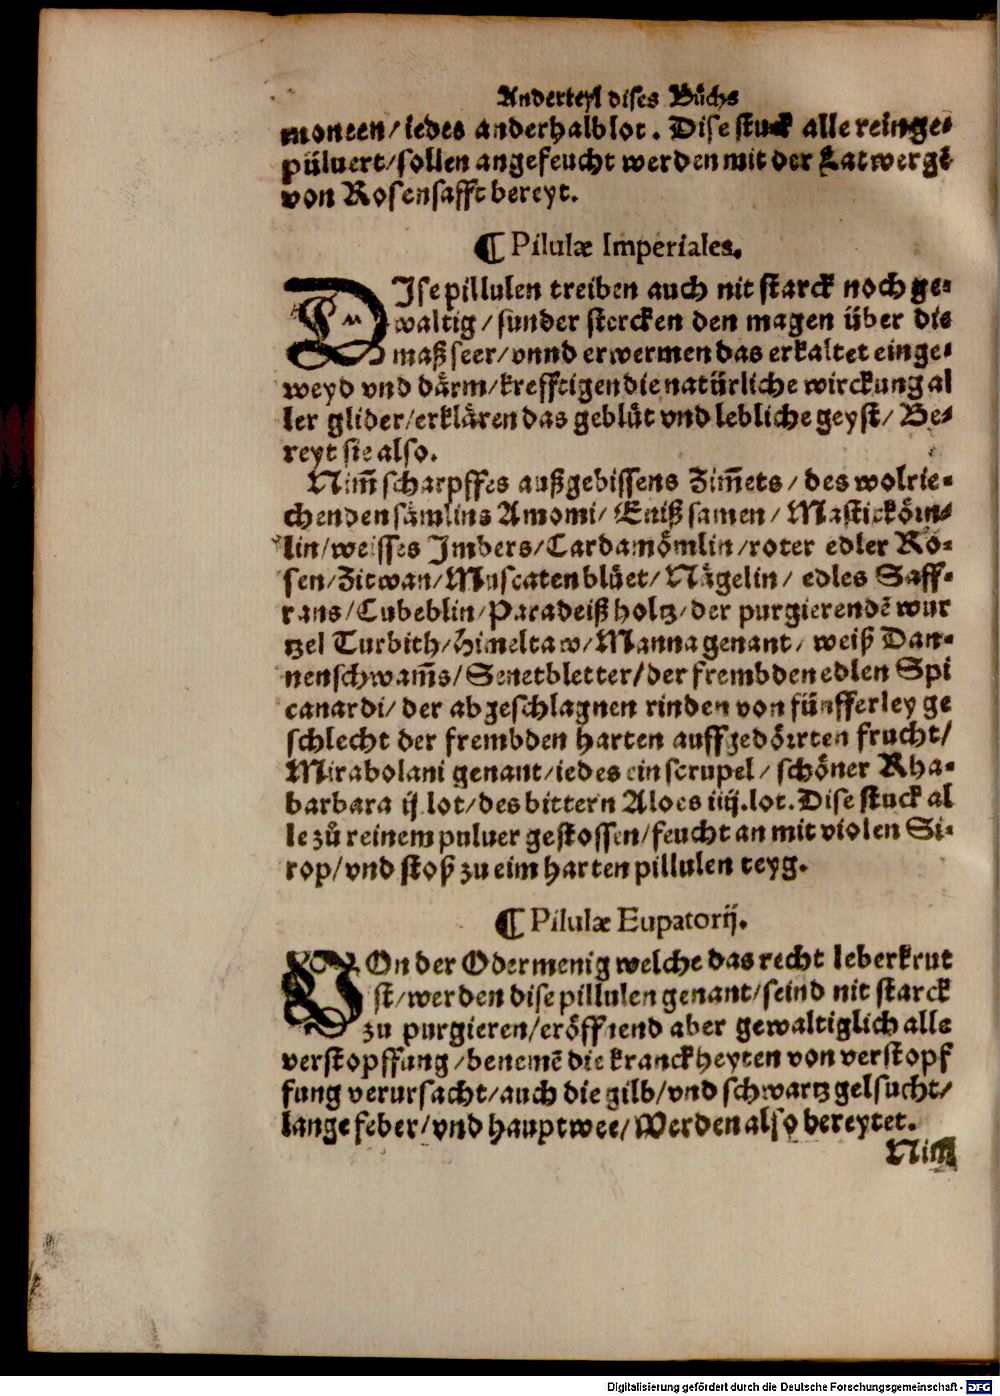 Anderteyl dises Bůchs
moneen/iedes anderhalblot. Dise stuck alle reinge-
pülvert/sollen angefeucht werden mit der Latwerge
von Rosensafft bereyt.
¶ Pilulæ Imperiales.
DIse pillulen treiben auch nit starck noch ge-
waltig/sunder stercken den magen über die
maß seer/vnnd erwermen das erkaltet einge-
weyd vnd därm/krefftigen die natürliche wirckung al
ler glider/erklären das geblüt vnd lebliche geyst/ Be-
reyt sie also.
Nim̃ scharpffes außgebissens Zim̃ets/des wolrie-
chenden sämlins Amomi/ Eniß samen/Mastickörn-
lin/weisses Imbers/Cardamömlin/roter edler Ro-
sen/Zitwan/Muscatenblüet/Nägelin/ edles Saff-
rans/Cubeblin/Paradeißholtz/der purgierendē wur
tzel Turbith/Himeltaw/Manna genant/ weiß Dan-
nenschwam̃s/Senetbletter/der frembden edlen Spi
canardi/der abgeschlagnen rinden von fünfferley ge
schlecht der frembden harten auffgedörrten frucht/
Mirabolani genant/iedes ein scrupel/schöner Rha-
barbara ij.lot/des bittern Aloes iiij.lot. Dise stuck al
le zů reinem puluer gestossen/feucht an mit violen Si-
rop/vnd stoß zu eim harten pillulen teyg.
¶ Pilulæ Eupatorij.
VOn der Odermenig welche das recht leberkrut
ist/werden dise pillulen genant/seind nit starck
zu purgieren/eröffnend aber gewaltiglich alle
verstopffung/benemē die kranckheyten von verstopf
fung verursacht/auch die gilb/vnd schwartz gelsucht/
lange feber/vnd hauptwee/Werden also bereytet.
Nim̃
Digitalisierung gefördert durch die Deutsche Forschungsgemeinschaft - DFG